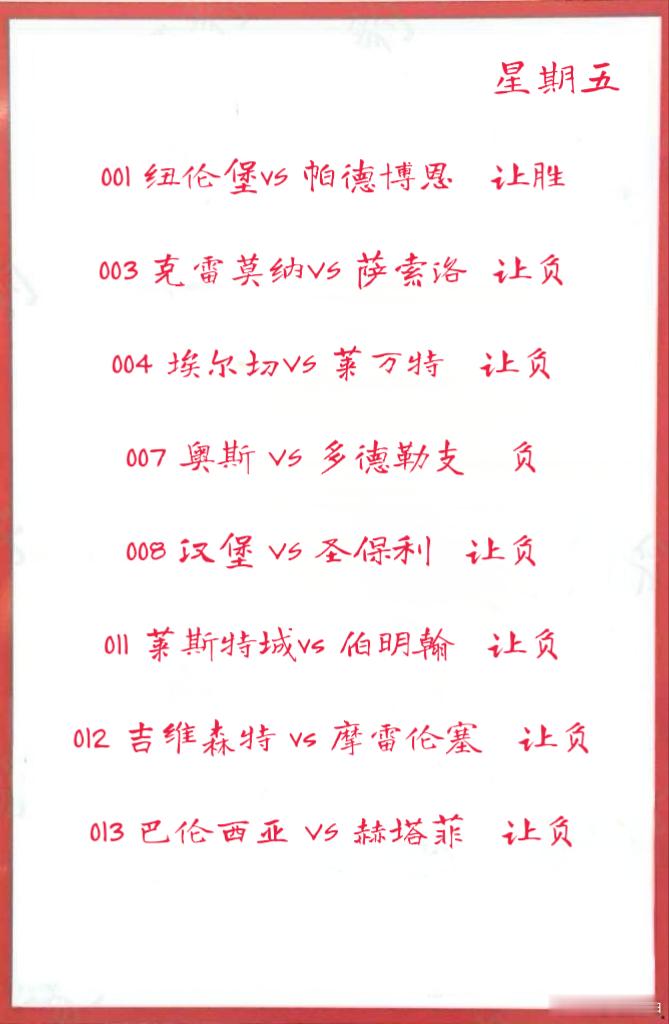 星期五
001 纽伦堡vs 帕德博恩 让胜
003 克雷莫纳vs 萨索洛 让负
004 埃尔切vs 莱万特 让负
007 奥斯 vs 多德勒支 负
008 汉堡 vs 圣保利 让负
011 莱斯特城vs 伯明翰 让负
012 吉维森特 vs 摩雷伦塞 让负
013 巴伦西亚 vs 赫塔菲 让负